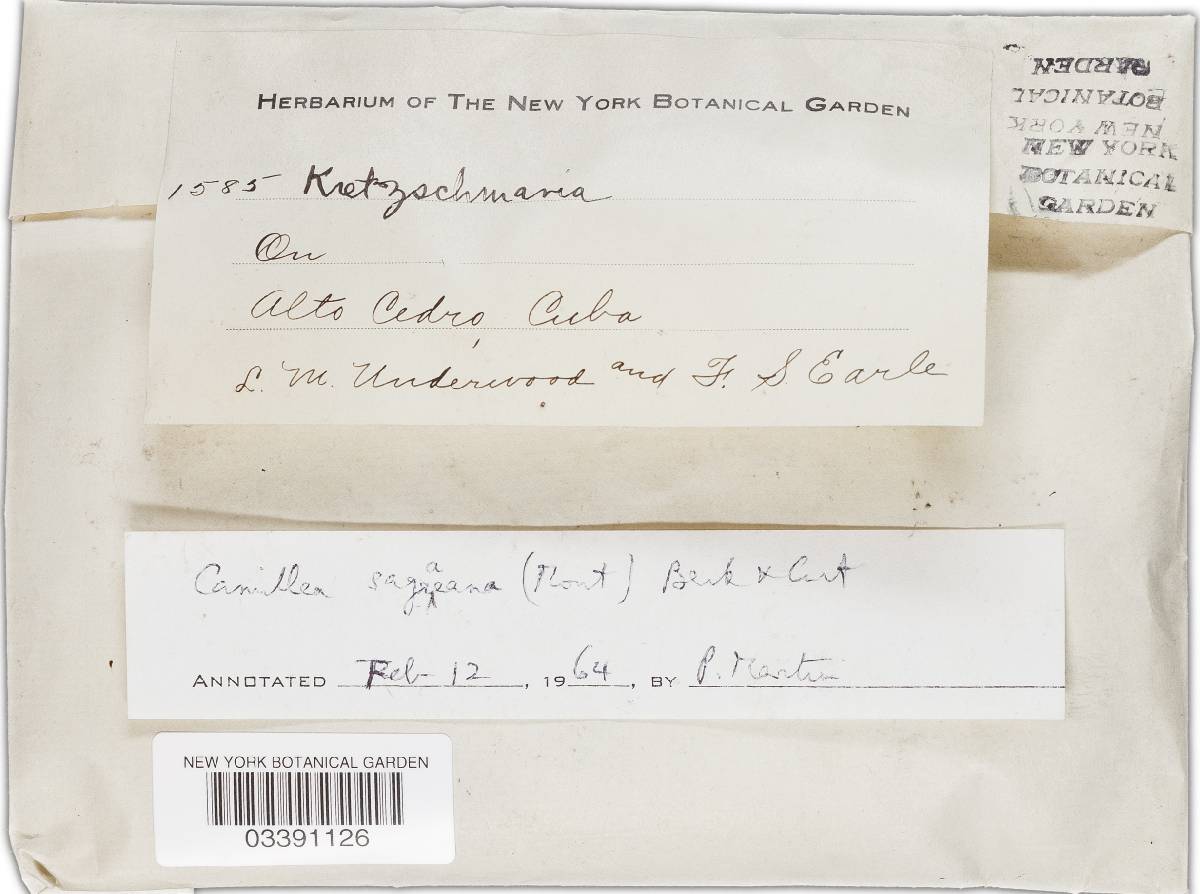 HERBARIUM OF THE NEW YORK BOTANICAL GARDEN
1585 Kretzschmaria
On
Alto Cedro, Cuba
L. M. Underwood and F. S. Earle
NEW YORK
BOTANICAL
GARDEN
NEW YORK
BOTANICAL
GARDEN
Camillea sagraeana (Mont) Berk & Curt
ANNOTATED Feb 12, 1964, BY P. Martin
NEW YORK BOTANICAL GARDEN
03391126